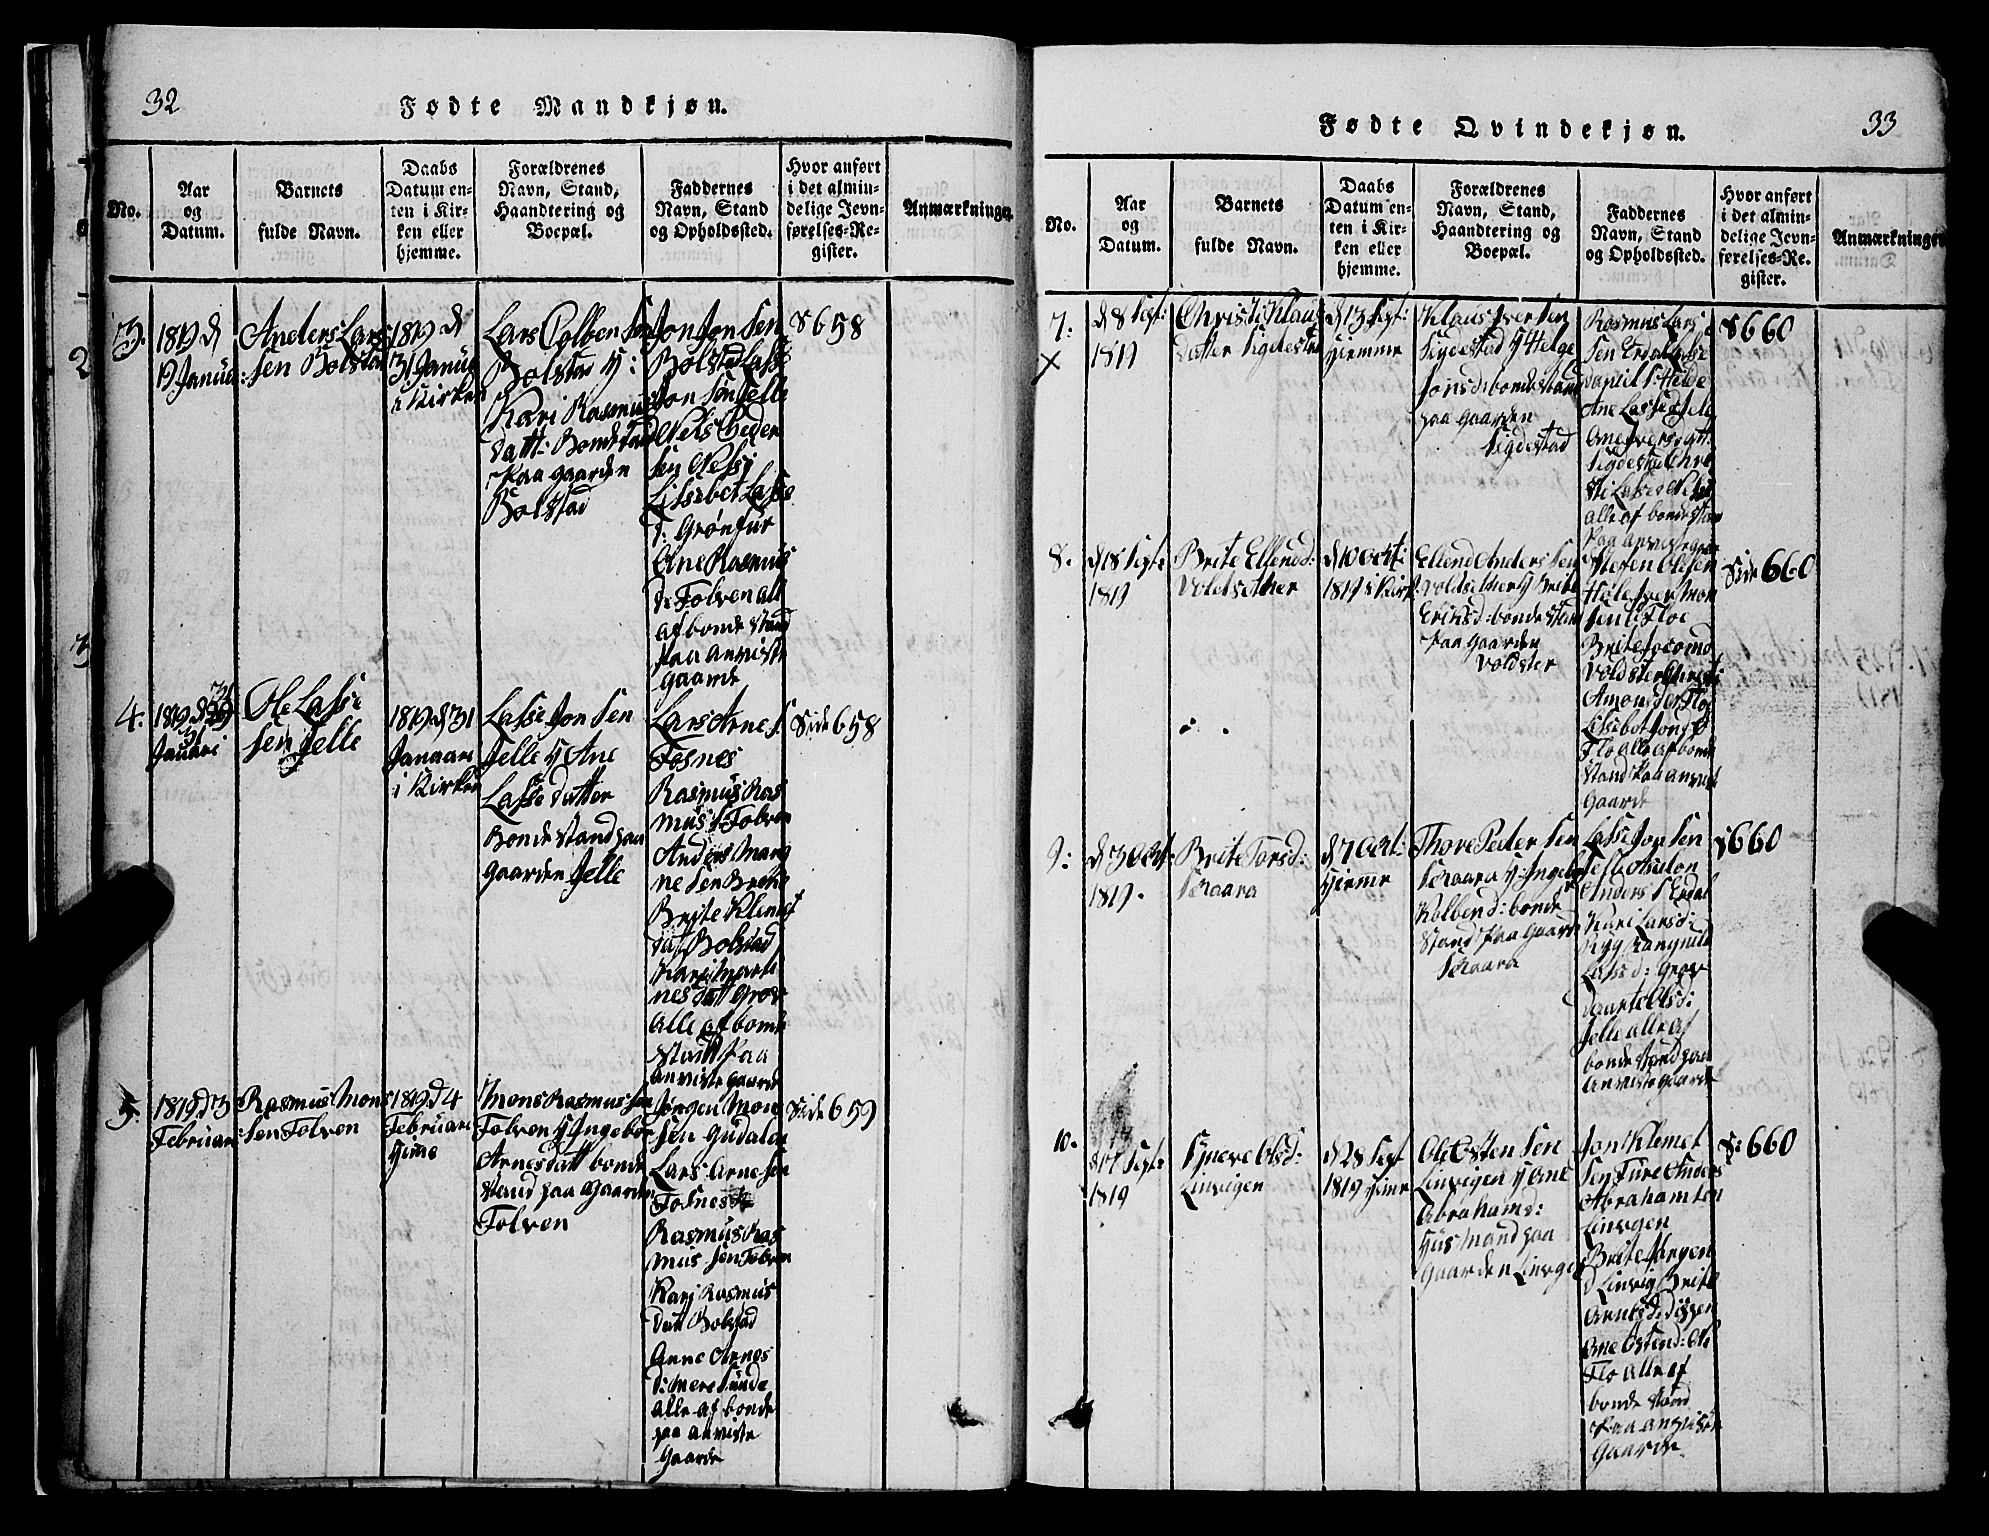 32
Fødte Mandkjøn.
No.
Aar
og
Datum.
Barnets
fulde Navn.
Daabs
Datum en-
ten i Kir-
ken eller
hjemme.
Forældrenes
Navn, Stand,
Haandtering og
Boepæl.
Faddernes
Navn, Stand
og Opholdssted.
Hvor anført
i det almin-
delige Jevn-
førelses-Re-
gister.
Anmærkninger.
3.
1819 d
19 Januar
Anders Lars
sen Bolstad
1819 d
31 Januar
i Kirken
Lars Colbensen
Bolstad H:
Kari Rasmus
datt: Bondestand
paa gaarden
Bolstad
Jon Jonsen
Bolstad Lasse
Jonsøn Jelle
Nels Peder
sen Nessj
Lisabet Lasse
d: Grønfur
Ane Rasmus
d: Folven all
af bondestand
paa anviste
gaarde
S 658
4.
1819 d
Januari
Ole Lasse
sen Jelle
1819 d 31
Januari
i Kirken
Lasse Jonsen
Jelle H Ane
Lassedatter
Bondestand paa
gaarden Jelle
Lars Arne S.
Fosnes
Rasmus Ras
mus S Folven
Anders Marq
nesen Brene
Brite Klemet
dat Bolstad
Kari Mark
nes datt Grov
alle af bonde
stand paa
anviste gaarde
Side 658
5.
1819 d 3
Februari
Rasmus Mons
sen Folven
1819 d 4
Februari
Hjeme
Mons Rasmussen
Folven H Ingebor
Arnesdatt bonde
stand paa gaarden
Folven
Jørgen Mon
sen Gudalen
Lars Arnesen
Fosnes
Rasmus Ras
mussen Folven
Karj Rasmus
datt Bolstad
Anne Arnes
d: Mere Sunde
alle af bonde
paa anviste
gaarde
Side 659
33
Fødte Qvindekjøn.
No.
Aar
og
Datum.
Barnets
fulde Navn.
Daabs
Datum en-
ten i Kir-
ken eller
hjemme.
Forældrenes
Navn, Stand,
Haandtering og
Boepæl.
Faddernes
Navn, Stand
og Opholdssted.
Hvor anført
i det almin-
delige Jevn-
førelses-Re-
gister.
Anmærkninger
7:
d 8 Sept:
1819
Christi Klaus
datter Sigdestad
d 13 Sept:
Hjemme
Klaus Iversen
Sigdestad H Helge
Jonsd: bondestand
paa gaarden
Sigdestad
Rasmus Lars
sen Erdal Lasse
Daniel S. Helde
Ane Lassed Jelle
Ane Ivers datt:
Sigdestad Chri
sti Lassed
alle af bondestand
paa anviste gaar
S 660
8.
d 18 Sept:
1819
Brite Ellend:
Voldsether
d 10 Oct:
1819 i Kirk:
Ellend Anderssen
Voldsether H Brite
Eriksd: bondestand
paa gaarden
Voldster
Steffen Olesen
Hole Iver Mon
sen Floe
Brite Jocomd
Voldster Christi
Amonsder Floe
Lisabet Jons d
Flo alle af bonde
stand paa anviste
gaarde
Side 660
9:
d 3 Oct:
1819.
Brite Torsd:
Skaara
d 7 Oct:
Hjemme
Thore Pedersen
Skaara H: Ingebor
Kolbend: bonde
stand paa gaarden
Skaara
Lasse Jonsen
Anders S Erdal
Kari Larsd:
Ryg Rangnild
Lassd: Grov
Daarte Olsd:
Jelle alle af
bondestand paa
anviste gaarde
S 660
10.
d 14 Sept:
1819
Syneve Olsd:
Linvigen
d 28 Sept
1819 Hjeme
Ole Ostensen
Linvigen H Ane
Abrahamsd:
Husmand paa
Gaarden Linvgen
Jon Klemet
sen Fure Anders
Abrahamsen
Linvgen
Brite Jørgen
d Linvig Brite
Arnts d:
Ane Ostend: Ols
Flo alle af
bondestand
paa anviste
Gaarde
S: 660